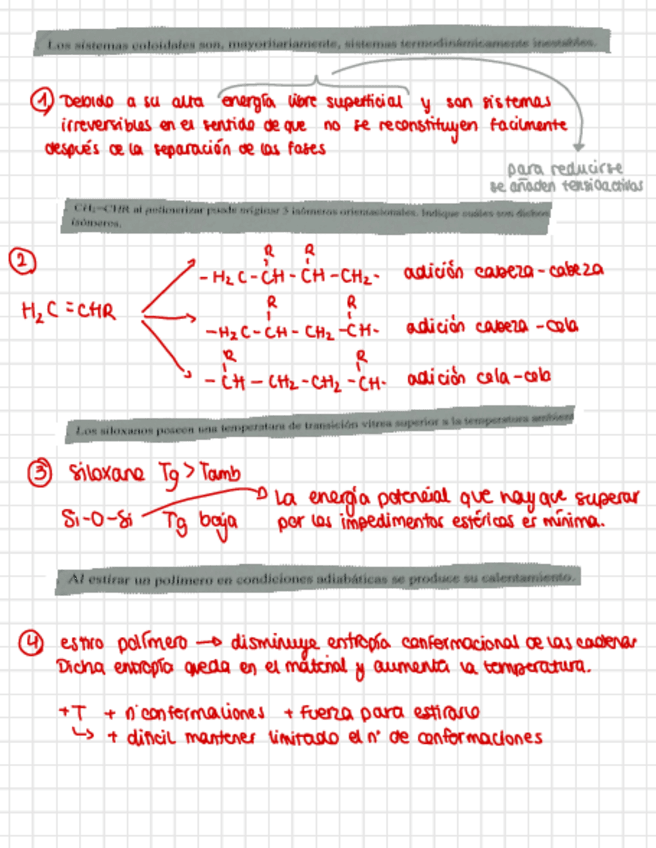 Los sistemas coloidales son, mayoritariamente, sistemas termodinámicamente inestables.
① Debido a su alta energía libre superficial y son sistemas
irreversibles en el sentido de que no se reconstituyen facilmente
después de la separación de las fases
para reducirse
se añaden tensioactivos
CH₂=CHR al polimerizar puede originar 3 isómeros orientacionales. Indique cuáles son dichos
isómeros.
②
H₂C=CHR
R R
-H₂C-CH-CH-CH₂- adición cabeza-cabeza
R R
-H₂C-CH-CH₂-CH- adición cabeza-cola
R R
-CH-CH₂-CH₂-CH- adición cola-cola
Los siloxanos poseen una temperatura de transición vítrea superior a la temperatura ambient
③ siloxano Tg > Tamb
Si-O-Si Tg baja
La energía potencial que hay que superar
por los impedimentos estéricos es mínima.
Al estirar un polímero en condiciones adiabáticas se produce su calentamiento.
④ estiro polímero → disminuye entropía conformacional de las cadenas
Dicha entropía queda en el máterial y aumenta la temperatura.
+T + nº conformaciones + fuerza para estirarlo
↳ + dificil mantener limitado el nº de conformaciones